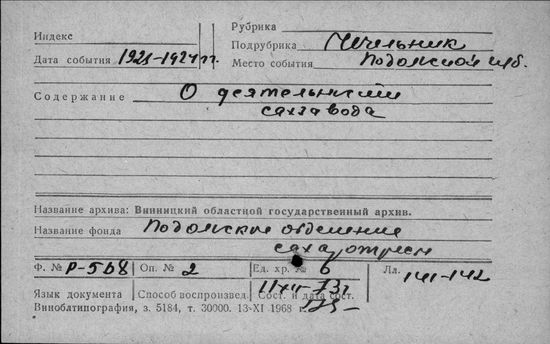 Индекс
Рубрика
Подрубрика Чечельник
Дата события 1923-1924 гг.
Место события Подольской губ.
Содержание О деятельности
сахзавода
Название архива: Винницкий областной государственный архив.
Название фонда Подольское отделение
сахаротреста
Ф. № Р-568 Оп. № 2 Ед. хр. № 6 Лл. 141-142
Язык документа Способ воспроизвед. Сост. и дата сост.
Винобатипография, з. 5184, т. 30000. 13-XI 1968 г.